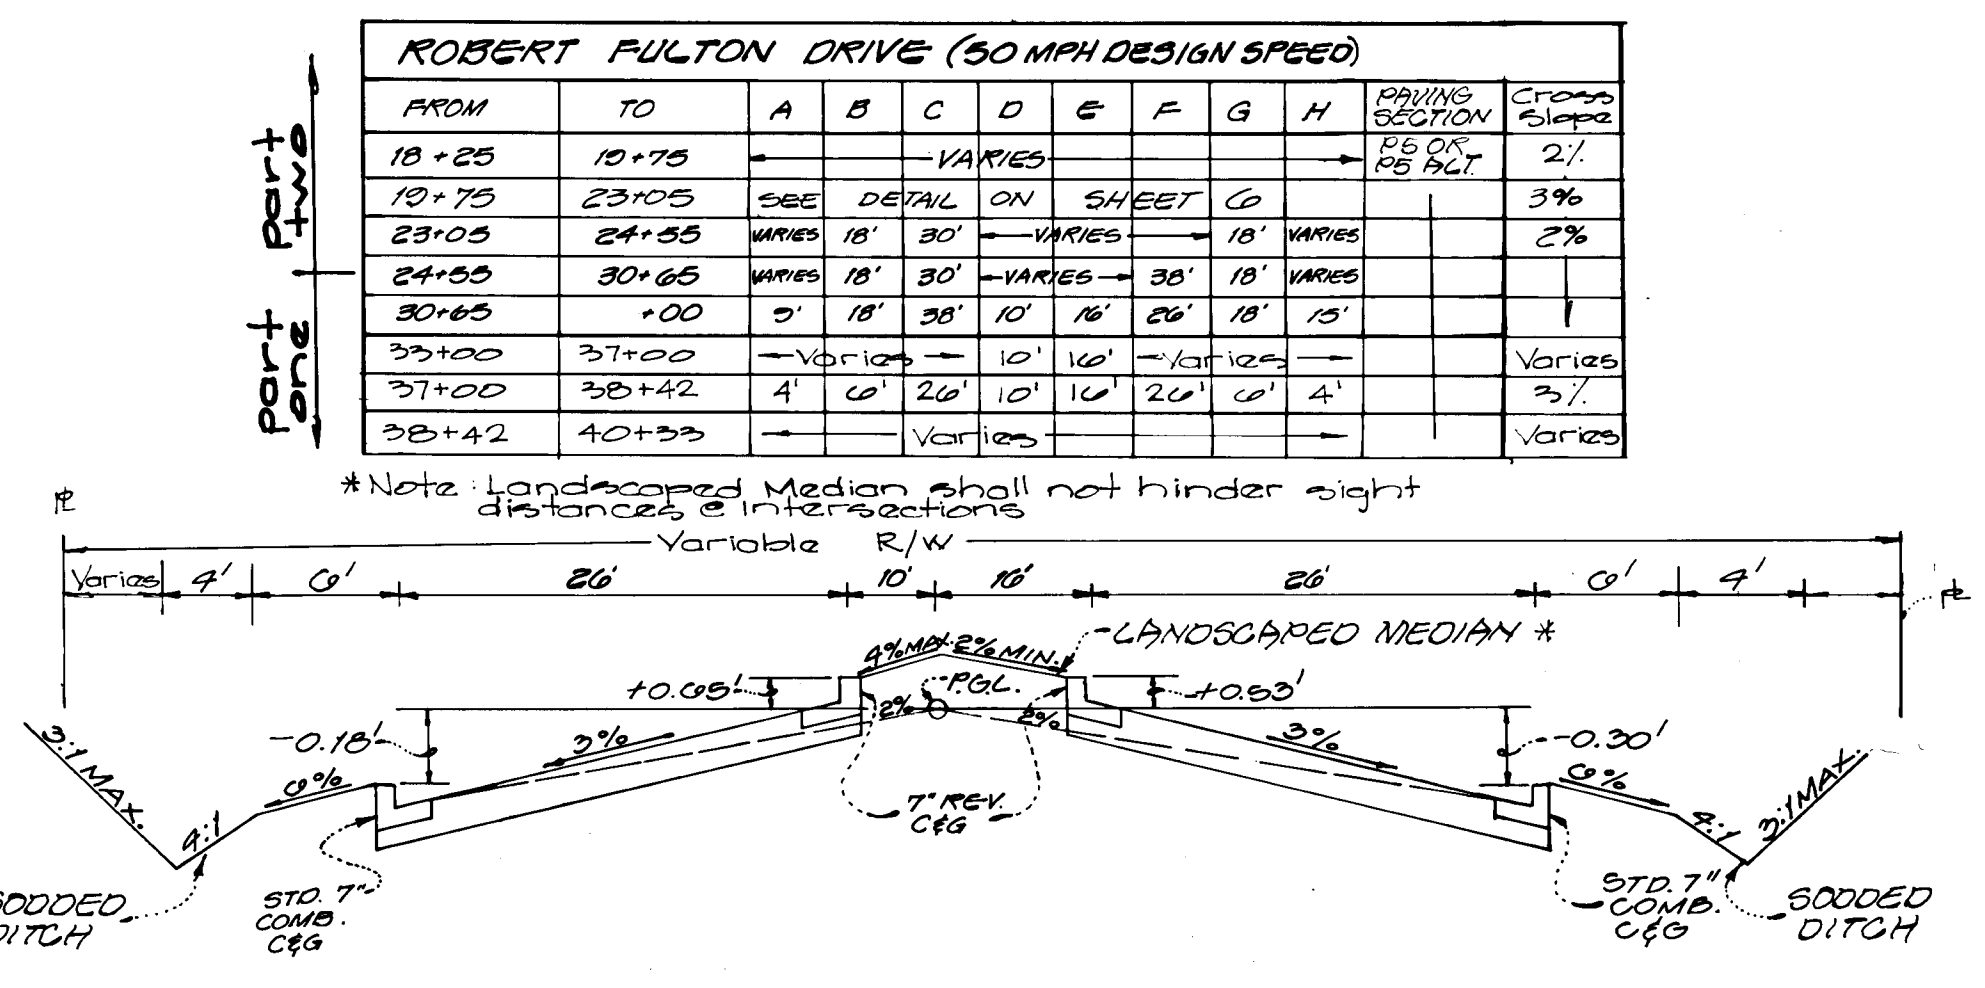 ROBERT FULTON DRIVE (50 MPH DESIGN SPEED)
FROM TO A B C D E F G H PAVING SECTION Cross Slope
18+25 19+75 VARIES P5 OR P5 ALT. 2%
19+75 23+05 SEE DETAIL ON SHEET 6 3%
23+05 24+55 VARIES 18' 30' VARIES 18' VARIES 2%
24+55 30+65 VARIES 18' 30' VARIES 38' 18' VARIES
30+65 +00 9' 18' 38' 10' 16' 26' 18' 15'
33+00 37+00 Varies 10' 16' Varies Varies
37+00 38+42 4' 6' 26' 10' 16' 26' 6' 4' 3%
38+42 40+33 Varies Varies
part two
part one
*Note: Landscaped Median shall not hinder sight
distances @ Intersections
PL
Variable R/W
Varies 4' 6' 26' 10' 16' 26' 6' 4'
PL
LANDSCAPED MEDIAN *
4% MAX. 2% MIN.
+0.65' P.G.L. +0.53'
2% 2%
-0.18' 3% 3% -0.30'
3:1 MAX. 6% 6% 3:1 MAX.
4:1 4:1
7" REV.
C&G
STD. 7"
COMB.
C&G
STD. 7"
COMB.
C&G
SODDED
DITCH
SODDED
DITCH